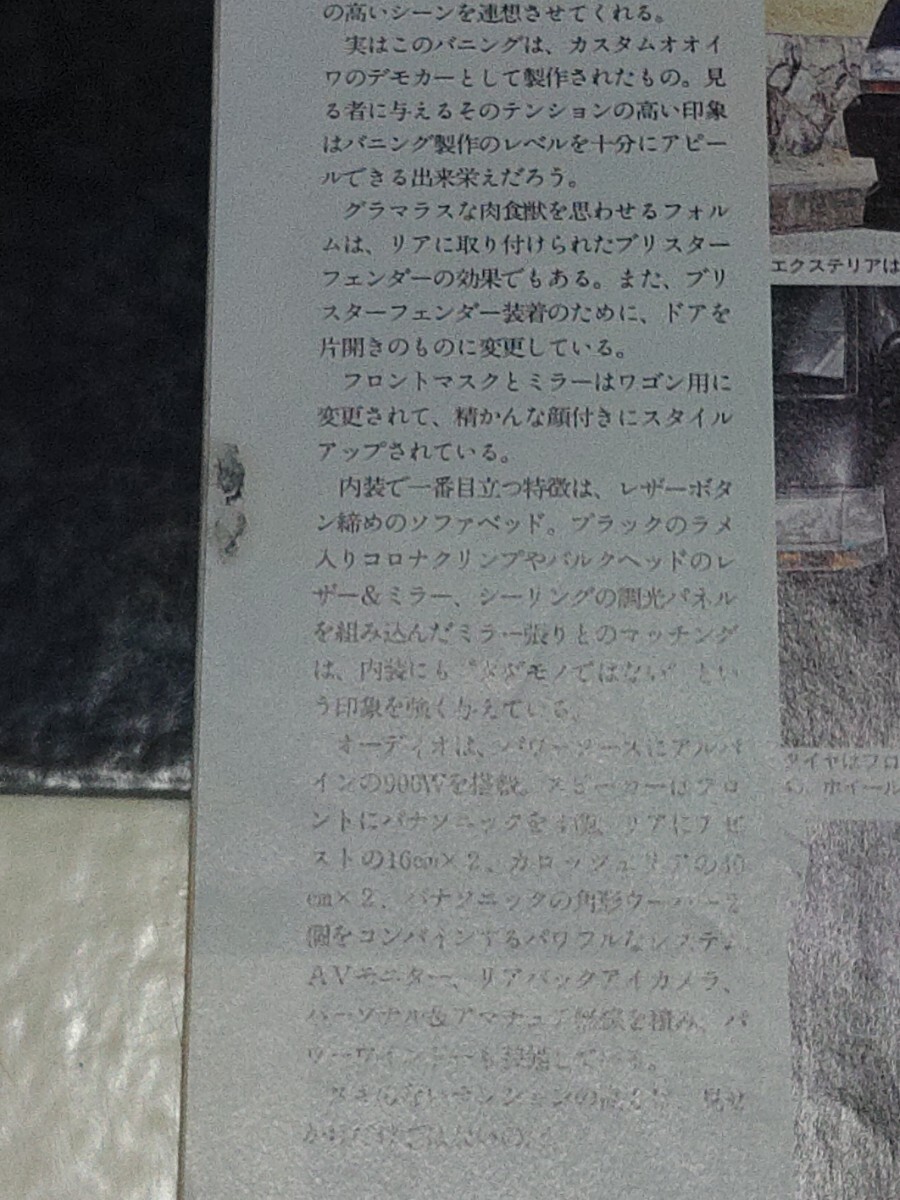 の高いシーンを連想させてくれる。
実はこのバニングは、カスタムオオイ
ワのデモカーとして製作されたもの。見
る者に与えるそのテンションの高い印象
はバニング製作のレベルを十分にアピー
ルできる出来栄えだろう。
グラマラスな肉食獣を思わせるフォル
ムは、リアに取り付けられたブリスター
フェンダーの効果でもある。また、ブリ
スターフェンダー装着のために、ドアを
片開きのものに変更している。
フロントマスクとミラーはワゴン用に
変更されて、精かんな顔付きにスタイル
アップされている。
内装で一番目立つ特徴は、レザーボタ
ン締めのソファベッド。ブラックのラメ
入りコロナクリンプやバルクヘッドのレ
ザー&ミラー、シーリングの調光パネル
を組み込んだミラー張りとのマッチング
は、内装にも“タダモノではない”とい
う印象を強く与えている。
オーディオは、パワーソースにアルパ
インの900Wを搭載。スピーカーはフロ
ントにパナソニックを リアにアゼ
ストの16cm×2、カロッツェリアの30
cm×2、パナソニックの角形ウーハー2
個をコンバインするパワフルなシステム。
AVモニター、リアバックアイカメラ、
パーソナル&アマチュア無線を積み、パ
ワーウインドーも装備している。
テンションの 見せ
エクステリアは
タイヤはフロ
ホイール